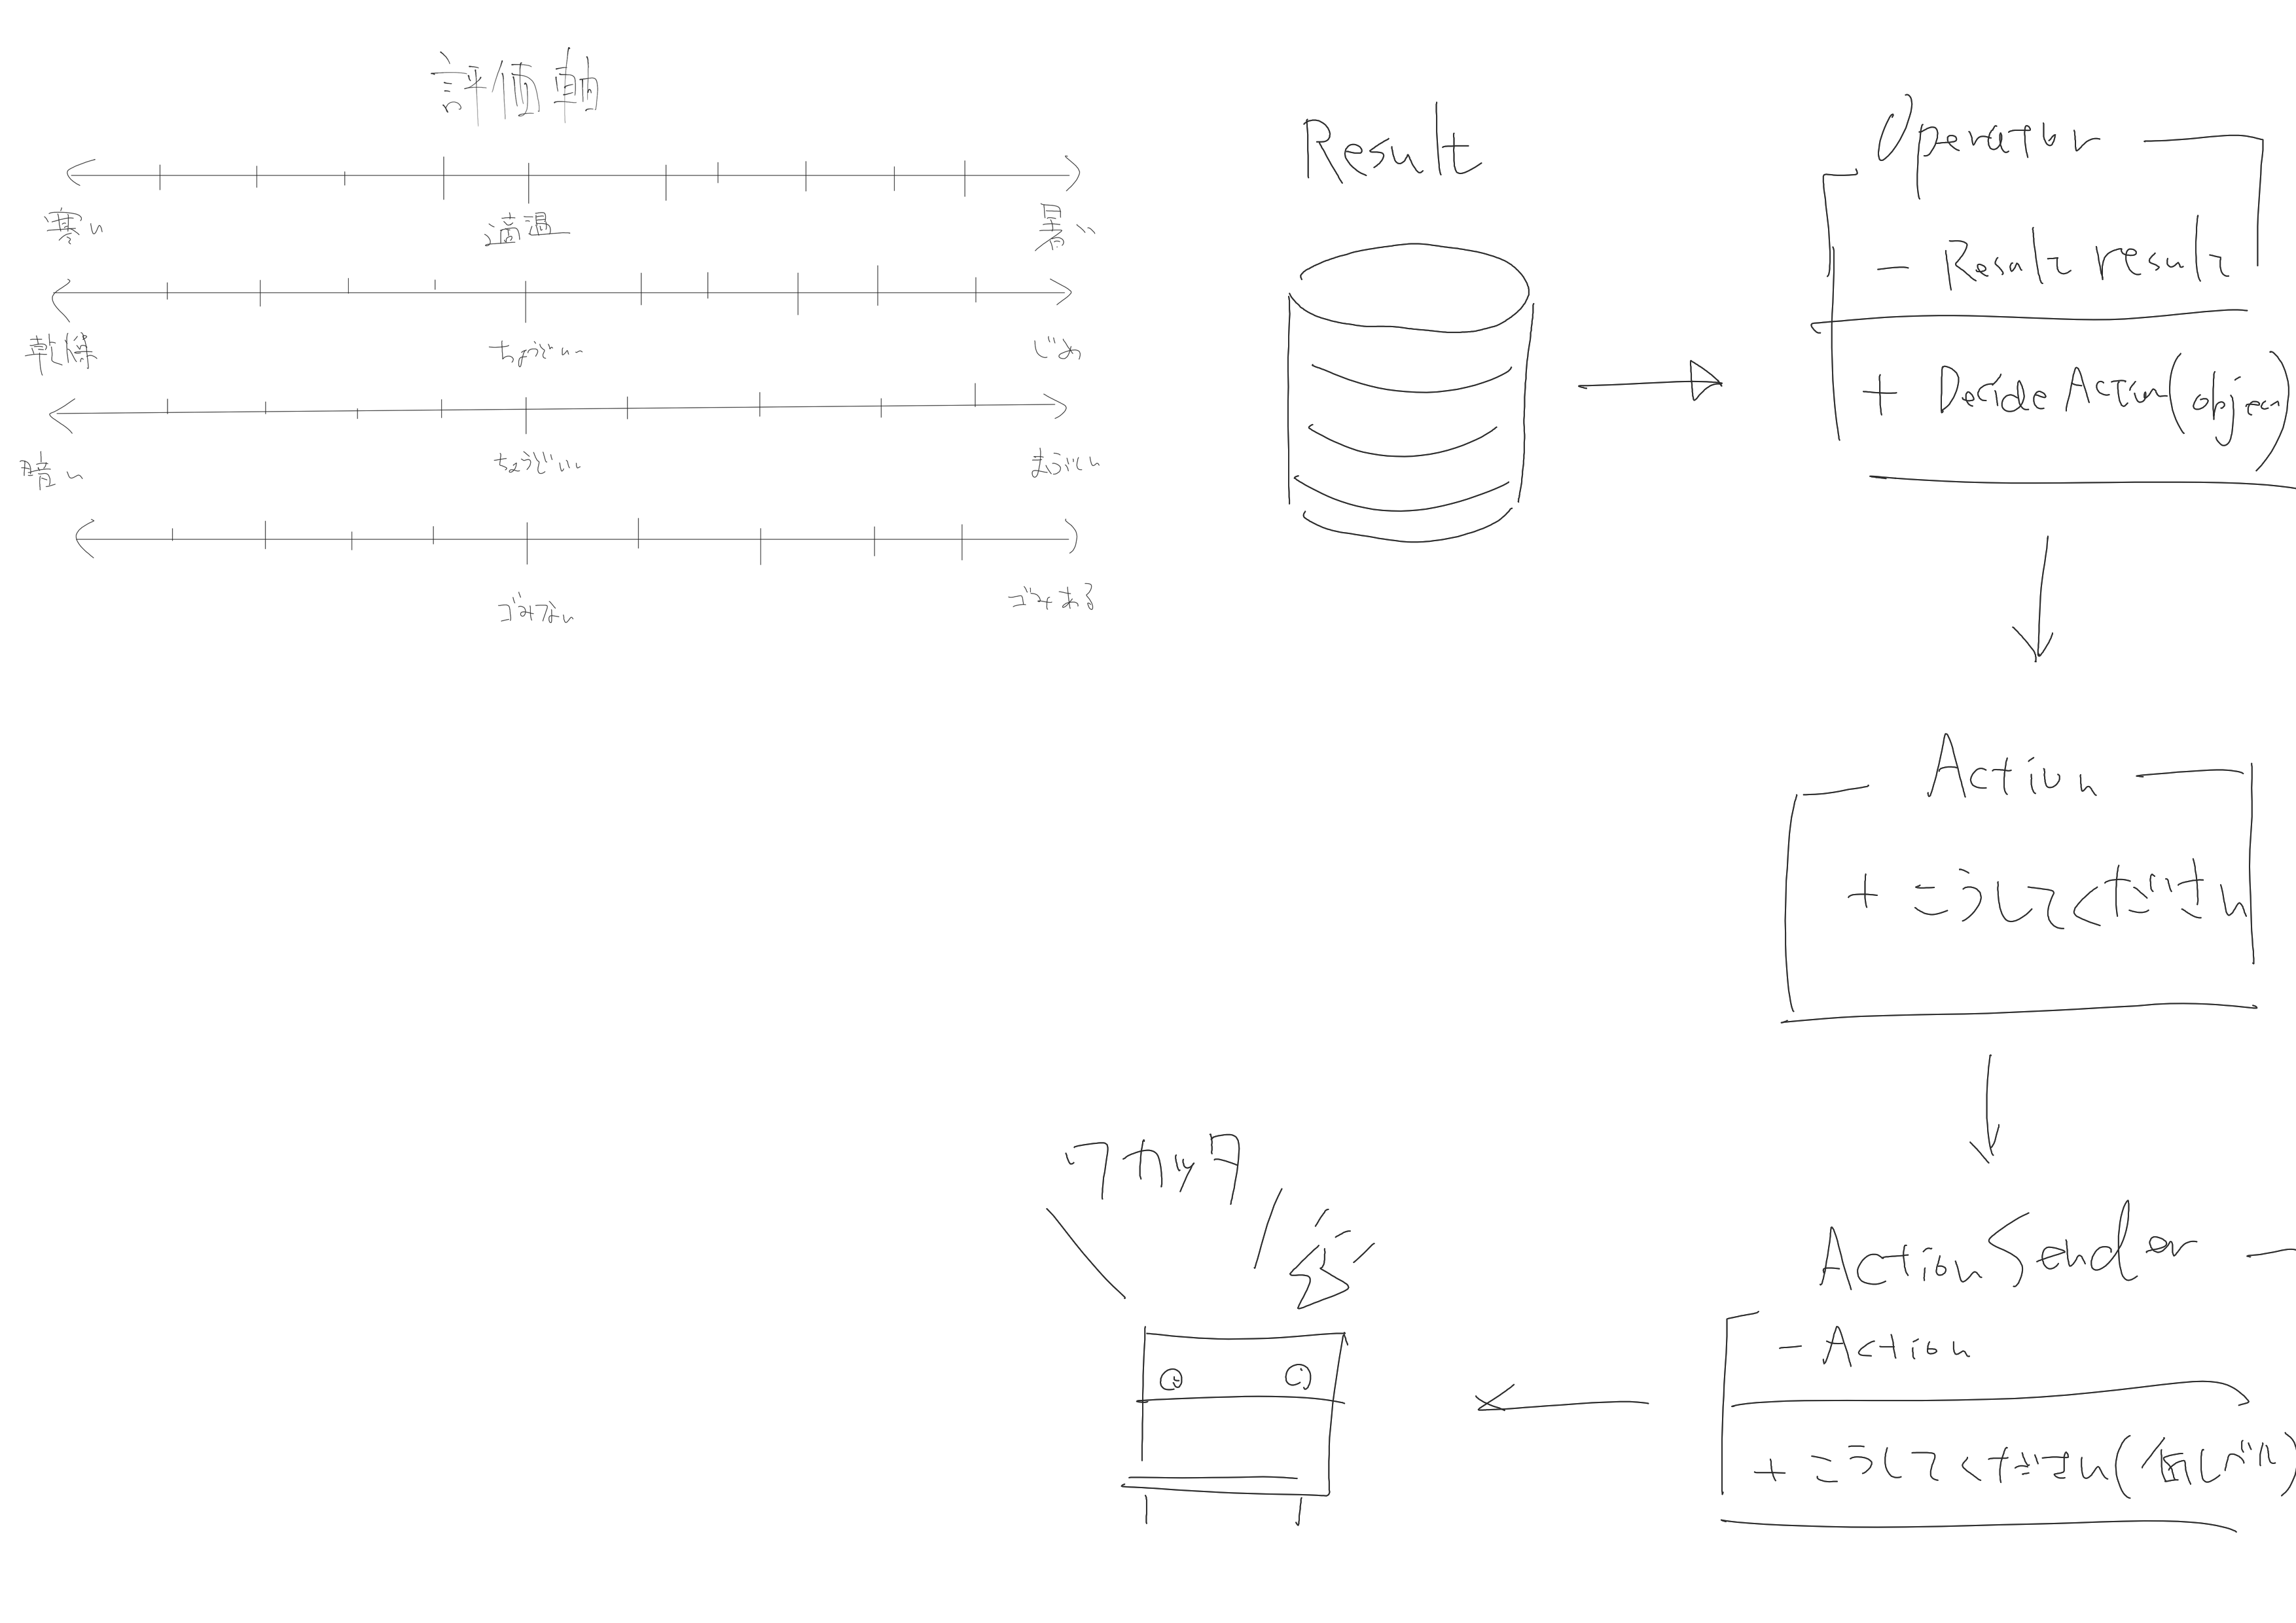 評価軸
寒い 適温 暑い
乾燥 ちょうどいい じめ
暗い ちょうどいい まぶしい
ゴミない ゴミある
Result
Operation
- Result result
+ Decide Action(object)
Action
+ こうしてください
Action Sender
- Action
+ こうしてください(低レベル)
ワカッタ